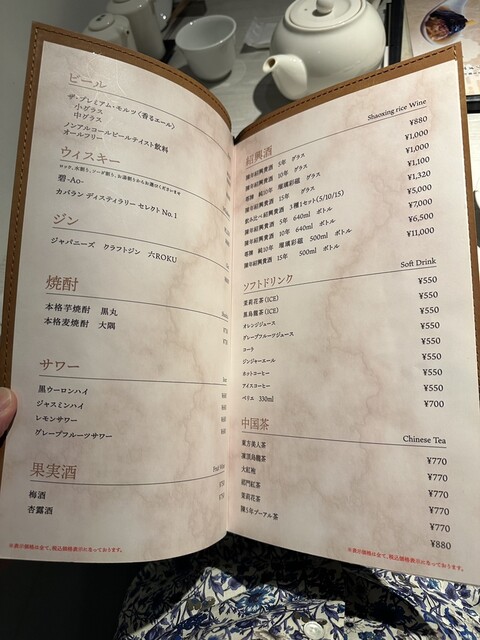 ビール
ザ・プレミアム・モルツ〈香るエール〉
小グラス
中グラス
ノンアルコールビールテイスト飲料
オールフリー
ウィスキー
ロック、水割り、ソーダ割り、お湯割りからお選びくださいませ
碧-Ao-
カバラン ディスティラリー セレクト No.1
ジン
ジャパニーズ クラフトジン 六ROKU
焼酎
本格芋焼酎 黒丸
本格麦焼酎 大隅
サワー
黒ウーロンハイ
ジャスミンハイ
レモンサワー
グレープフルーツサワー
果実酒
梅酒
杏露酒
※表示価格は全て、税込価格表示になっております。
紹興酒 Shaoxing rice Wine
陳年紹興貴酒 5年 グラス ¥880
陳年紹興貴酒 10年 グラス ¥1,000
純10年 琉璃彩磁 グラス ¥1,100
陳年紹興貴酒 15年 グラス ¥1,320
飲み比べ 紹興貴酒 3種1セット(5/10/15) ¥1,000
陳年紹興貴酒 5年 640ml ボトル ¥5,000
陳年紹興貴酒 10年 640ml ボトル ¥7,000
純10年 琉璃彩磁 500ml ボトル ¥6,500
陳年紹興貴酒 15年 500ml ボトル ¥11,000
ソフトドリンク Soft Drink
茉莉花茶(ICE) ¥550
黒烏龍茶(ICE) ¥550
オレンジジュース ¥550
グレープフルーツジュース ¥550
コーラ ¥550
ジンジャーエール ¥550
ホットコーヒー ¥550
アイスコーヒー ¥550
ペリエ 330ml ¥700
中国茶 Chinese Tea
東方美人茶 ¥770
凍頂烏龍茶 ¥770
大紅袍 ¥770
祁門紅茶 ¥770
茉莉花茶 ¥770
陳5年プーアル茶 ¥880
※表示価格は全て、税込価格表示になっております。